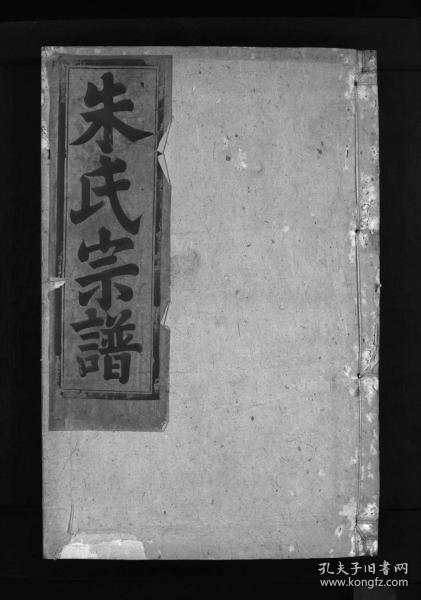 朱氏宗譜
孔夫子旧书网
www.kongfz.com